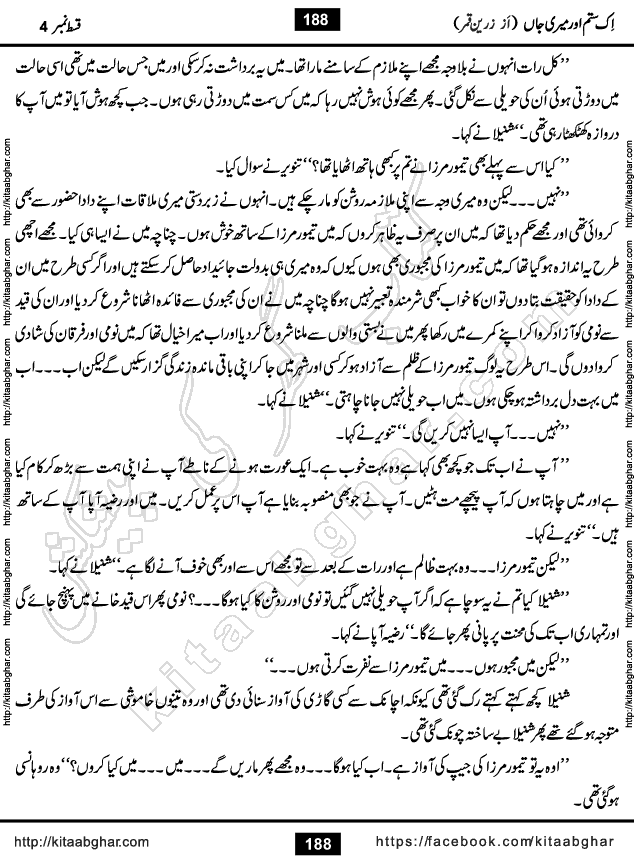 اِک ستم اور میری جاں (از زرین قمر)
188
قسط نمبر 4
’’کل رات انہوں نے بلاوجہ مجھے اپنے ملازم کے سامنے مارا تھا۔ میں یہ برداشت نہ کر سکی اور میں جس حالت میں تھی اسی حالت
میں دوڑتی ہوئی اُن کی حویلی سے نکل گئی۔ پھر مجھے کوئی ہوش نہیں رہا کہ میں کس سمت میں دوڑتی رہی ہوں۔ جب کچھ ہوش آیا تو میں آپ کا
دروازہ کھٹکھٹا رہی تھی۔‘‘ شنیلا نے کہا۔
’’کیا اس سے پہلے بھی تیمور مرزا نے تم پر کبھی ہاتھ اٹھایا تھا؟‘‘ تنویر نے سوال کیا۔
’’نہیں ۔۔۔ لیکن وہ میری وجہ سے اپنی ملازمہ روشن کو مار چکے ہیں۔ انہوں نے زبردستی میری ملاقات اپنے دادا حضور سے بھی
کروائی تھی اور مجھے حکم دیا تھا کہ میں ان پر صرف یہ ظاہر کروں کہ میں تیمور مرزا کے ساتھ خوش ہوں۔ چنانچہ میں نے ایسا ہی کیا۔ مجھے اچھی
طرح یہ اندازہ ہو گیا تھا کہ میں تیمور مرزا کی مجبوری بھی ہوں کیوں کہ وہ میری ہی بدولت جائیداد حاصل کر سکتے ہیں اور اگر کسی طرح میں ان
کے دادا کو حقیقت بتا دوں تو ان کا خواب کبھی شرمندہ تعبیر نہیں ہوگا چنانچہ میں نے ان کی مجبوری سے فائدہ اٹھانا شروع کر دیا اور ان کی قید
سے نومی کو آزاد کروا کر اپنے کمرے میں رکھا پھر میں نے بستی والوں سے ملنا شروع کر دیا اور اب میرا خیال تھا کہ میں نومی اور فرقان کی شادی
کروا دوں گی۔ اس طرح یہ لوگ تیمور مرزا کے ظلم سے آزاد ہو کر کسی اور شہر میں جا کر اپنی باقی ماندہ زندگی گزار سکیں گے لیکن اب ۔۔۔ اب
میں بہت دل برداشتہ ہو چکی ہوں۔ میں اب حویلی نہیں جانا چاہتی۔‘‘ شنیلا نے کہا۔
’’نہیں ۔۔۔ آپ ایسا نہیں کریں گی۔‘‘ تنویر نے کہا۔
’’آپ نے اب تک جو کچھ بھی کہا ہے وہ بہت خوب ہے۔ ایک عورت ہونے کے ناطے آپ نے اپنی ہمت سے بڑھ کر کام کیا
ہے اور میں چاہتا ہوں کہ آپ پیچھے مت ہٹیں۔ آپ نے جو بھی منصوبہ بنایا ہے آپ اس پر عمل کریں۔ میں اور رضیہ آپا آپ کے ساتھ
ہیں۔‘‘ تنویر نے کہا۔
’’لیکن تیمور مرزا ۔۔۔ وہ بہت ظالم ہے اور رات کے بعد سے تو مجھے اس سے اور بھی خوف آنے لگا ہے۔‘‘ شنیلا نے کہا۔
’’شنیلا کیا تم نے یہ سوچا ہے کہ اگر آپ حویلی نہیں گئیں تو نومی اور روشن کا کیا ہوگا ۔۔۔؟ نومی پھر اس قید خانے میں پہنچ جائے گی
اور تمہاری اب تک کی محنت پر پانی پھر جائے گا۔‘‘ رضیہ آپا نے کہا۔
’’لیکن میں مجبور ہوں ۔۔۔ میں تیمور مرزا سے نفرت کرتی ہوں ۔۔۔‘‘
شنیلا کچھ کہتے کہتے رک گئی تھی کیونکہ اچانک سے کسی گاڑی کی آواز سنائی دی تھی اور وہ تینوں خاموشی سے اس آواز کی طرف
متوجہ ہو گئے تھے پھر شنیلا بے ساختہ چونک گئی تھی۔
’’اوہ یہ تو تیمور مرزا کی جیپ کی آواز ہے۔ اب کیا ہوگا ۔۔۔ وہ مجھے پھر ماریں گے ۔۔۔ میں ۔۔۔ میں کیا کروں؟‘‘ وہ روہانسی
ہو گئی تھی۔
http://kitaabghar.com http://kitaabghar.com http://kitaabghar.com http://kitaabghar.com http://kitaabghar.com http://kitaabghar.com
http://kitaabghar.com http://kitaabghar.com http://kitaabghar.com http://kitaabghar.com http://kitaabghar.com http://kitaabghar.com
کتاب گھر کی پیشکش
kitaabghar.com
http://kitaabghar.com
188
https://facebook.com/kitaabghar